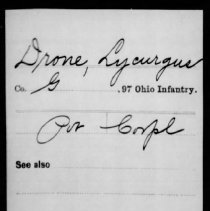 Drone, Lycurgus
Co. G , 97 Ohio Infantry.
Pvt Corpl
See also